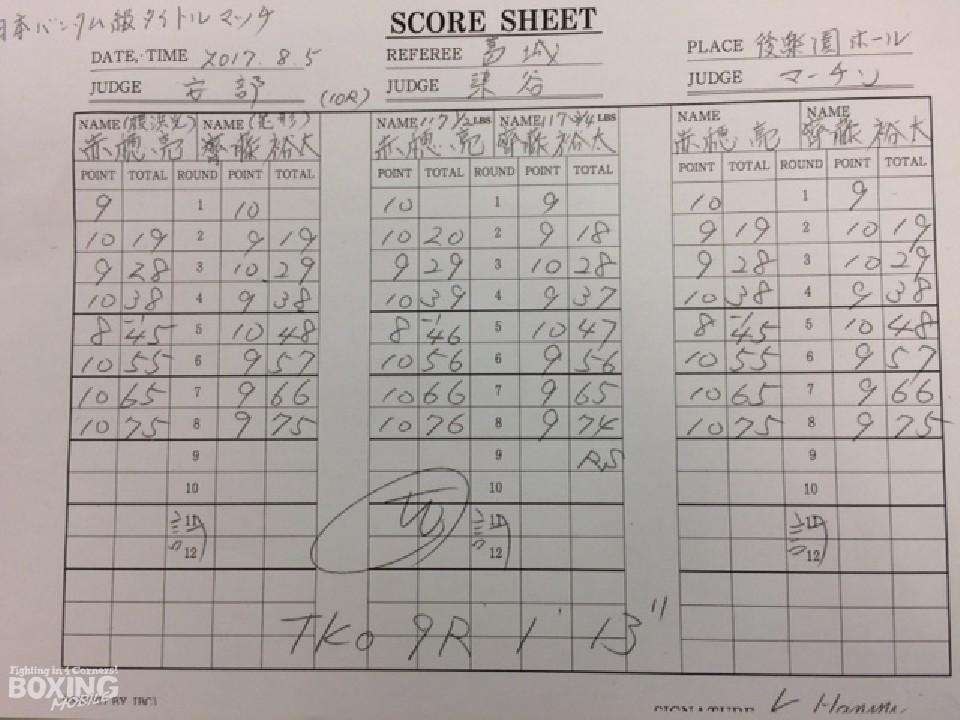 日本バンタム級タイトルマッチ
SCORE SHEET
DATE, TIME 2017. 8. 5 REFEREE 葛城 PLACE 後楽園ホール
JUDGE 安部 (10R) JUDGE 染谷 JUDGE マーチン
NAME NAME NAME 117 1/2 LBS NAME 117 3/4 LBS NAME NAME
赤穂亮 齊藤裕太 赤穂亮 齊藤裕太 赤穂亮 齊藤裕太
POINT TOTAL ROUND POINT TOTAL POINT TOTAL ROUND POINT TOTAL POINT TOTAL ROUND POINT TOTAL
9 1 10 10 1 9 10 1 9
10 19 2 9 19 10 20 2 9 18 9 19 2 10 19
9 28 3 10 29 9 29 3 10 28 9 28 3 10 29
10 38 4 9 38 10 39 4 9 37 10 38 4 9 38
8 -1 45 5 10 48 8 -1 46 5 10 47 8 -1 45 5 10 48
10 55 6 9 57 10 56 6 9 56 10 55 6 9 57
10 65 7 9 66 10 66 7 9 65 10 65 7 9 66
10 75 8 9 75 10 76 8 9 74 10 75 8 9 75
9 9 RS 9
10 10 10
11 11 11
12 12 12
TKO 9R 1' 13"
Fighting in 4 Corners!
BOXING
MOBILE
SIGNATURE